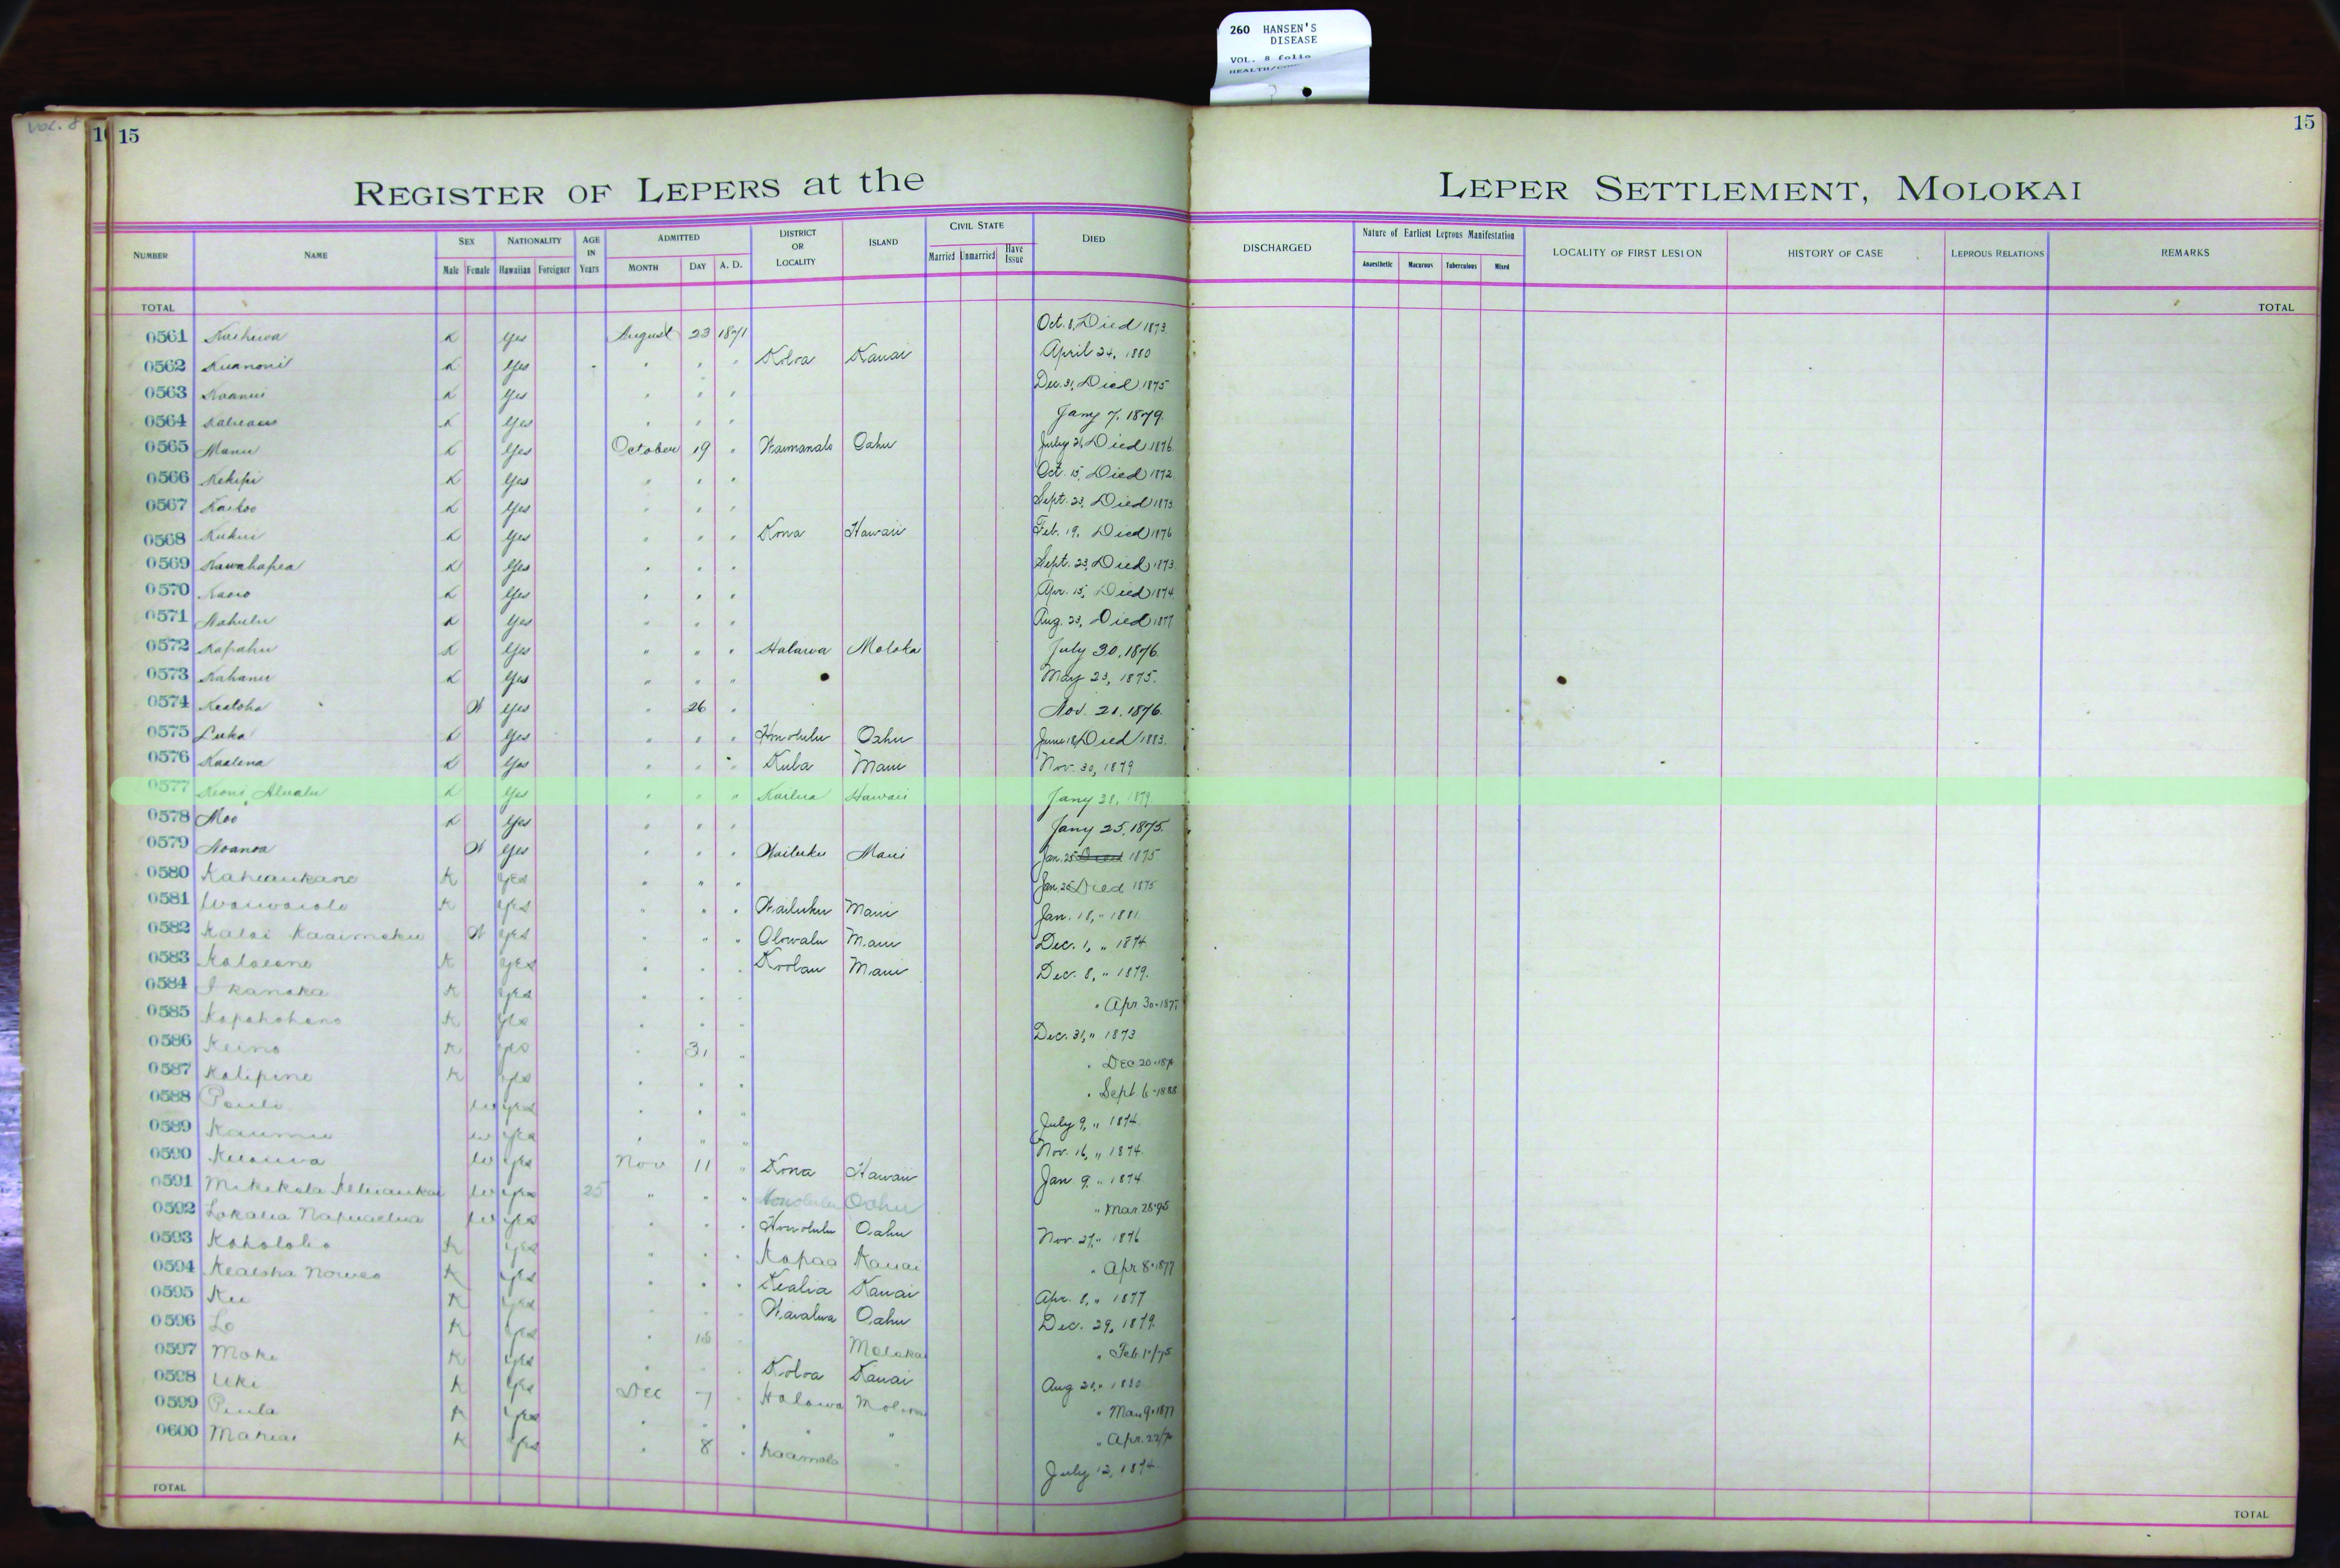 260 HANSEN'S
DISEASE
VOL. 8 folio
VOL. 8
15
15
REGISTER OF LEPERS at the LEPER SETTLEMENT, MOLOKAI
NUMBER NAME SEX NATIONALITY AGE IN Years ADMITTED DISTRICT OR LOCALITY ISLAND CIVIL STATE DIED DISCHARGED Nature of Earliest Leprous Manifestation LOCALITY OF FIRST LESION HISTORY OF CASE LEPROUS RELATIONS REMARKS
Male Female Hawaiian Foreigner MONTH DAY A. D. Married Unmarried Have Issue Anaesthetic Macurous Tuberculous Mixed
TOTAL TOTAL
0561 K Yes August 23 1871 Oct. 8, Died 1873.
0562 K Yes " " " Koloa Kauai April 24, 1880
0563 K Yes " " " Dec. 31, Died 1875
0564 K Yes " " " Jany 7, 1879.
0565 Manu K Yes October 19 " Waimanalo Oahu July 26, Died 1876.
0566 Kekipi K Yes " " " Oct. 15, Died 1872.
0567 Kaikoo K Yes " " " Sept. 23, Died 1873.
0568 Kukui K Yes " " " Kona Hawaii Feb. 19, Died 1876
0569 Kawahapea K Yes " " " Sept. 23, Died 1873.
0570 K Yes " " " Apr. 15, Died 1874.
0571 Nahulu K Yes " " " Aug. 23, Died 1877
0572 Kapahu K Yes " " " Halawa Moloka July 30, 1876.
0573 Kahanu K Yes " " " May 23, 1875.
0574 Kealoha W Yes " 26 " Nov. 21, 1876.
0575 Luka K Yes " " " Honolulu Oahu June 18, Died 1883.
0576 Kaalena K Yes " " " Kula Maui Nov. 30, 1879
0577 Keoni Alualu K Yes " " " Kailua Hawaii Jany 31, 1879.
0578 Moo K Yes " " " Jany 25, 1875.
0579 Noanoa W Yes " " " Wailuku Maui Jan. 25 Died 1875
0580 Kaheaukano K Yes " " " Jan. 25 Died 1875
0581 Waiwaiole K Yes " " " Wailuku Maui Jan. 18, " 1881.
0582 Kalai Kaaimoku W Yes " " " Olowalu Maui Dec. 1, " 1874.
0583 K Yes " " " Koolau Maui Dec. 8, " 1879.
0584 I kanaka K Yes " " " " Apr 30-187
0585 Kapahohano K Yes " " " Dec. 31, " 1873
0586 Keino K Yes " 31 " " Dec 20-187
0587 Kalipine K Yes " " " " Sept 6-1888
0588 Pauli W Yes " " " July 9, " 1874.
0589 Kaumu W Yes " " " Nov. 16, " 1874.
0590 W Yes Nov 11 " Kona Hawaii Jan. 9, " 1874.
0591 Mikikola W Yes 25 " " " Honolulu Oahu " Mar. 28-95
0592 Lokalia Napuaelua W Yes " " " Honolulu Oahu Nov. 27, " 1876
0593 Koholoko K Yes " " " Kapaa Kauai " Apr 8-1877
0594 Kealoha Noweo K Yes " " " Kealia Kauai Apr. 8, " 1877
0595 Ku K Yes " " " Waialua Oahu Dec. 29, 1879.
0596 Lo K Yes " 18 " Molokai " Feb 1-/75
0597 Moke K Yes " " " Koloa Kauai Aug 20, " 1880
0598 Uki K Yes Dec 7 " Halawa Moloka " Mar 9-1877
0599 Piula K Yes " " " " " " Apr. 22/76
0600 Mahiai K Yes " 8 " Kaamola " July 12, 1874.
TOTAL TOTAL